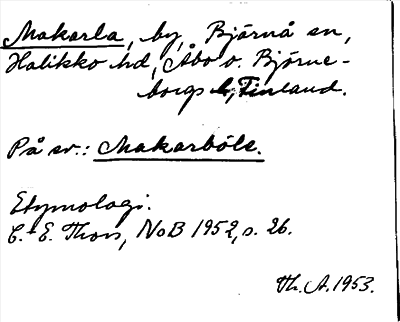 Makarla, by, Bjärnå sn,
Halikko hd, Åbo o. Björne-
borgs l., Finland.
På sv.: Makarböle.
Etymologi.
C.-E. Thors, NoB 1952, s. 26.
Th. A. 1953.